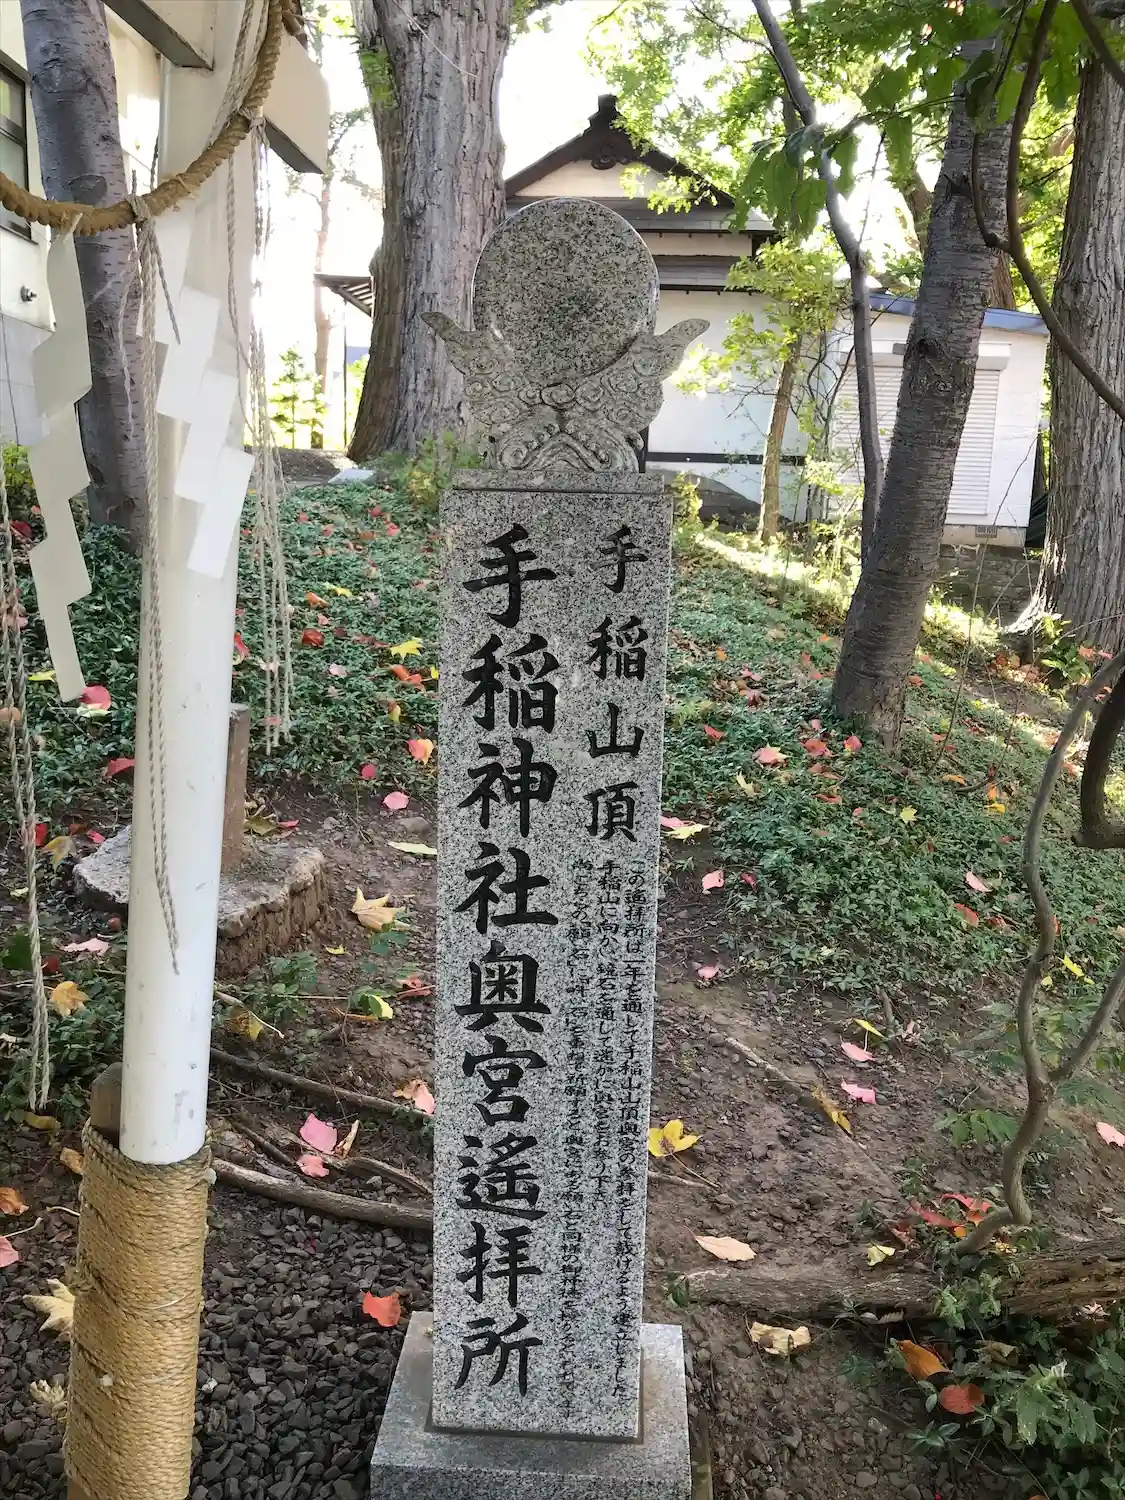 手稲山頂
手稲神社奥宮遙拝所
この遥拝所は一年を通して手稲山頂奥宮の参拝をして戴けるよう建立しました
手稲山に向かい鏡石を通して遥かに奥宮をお参り下さい